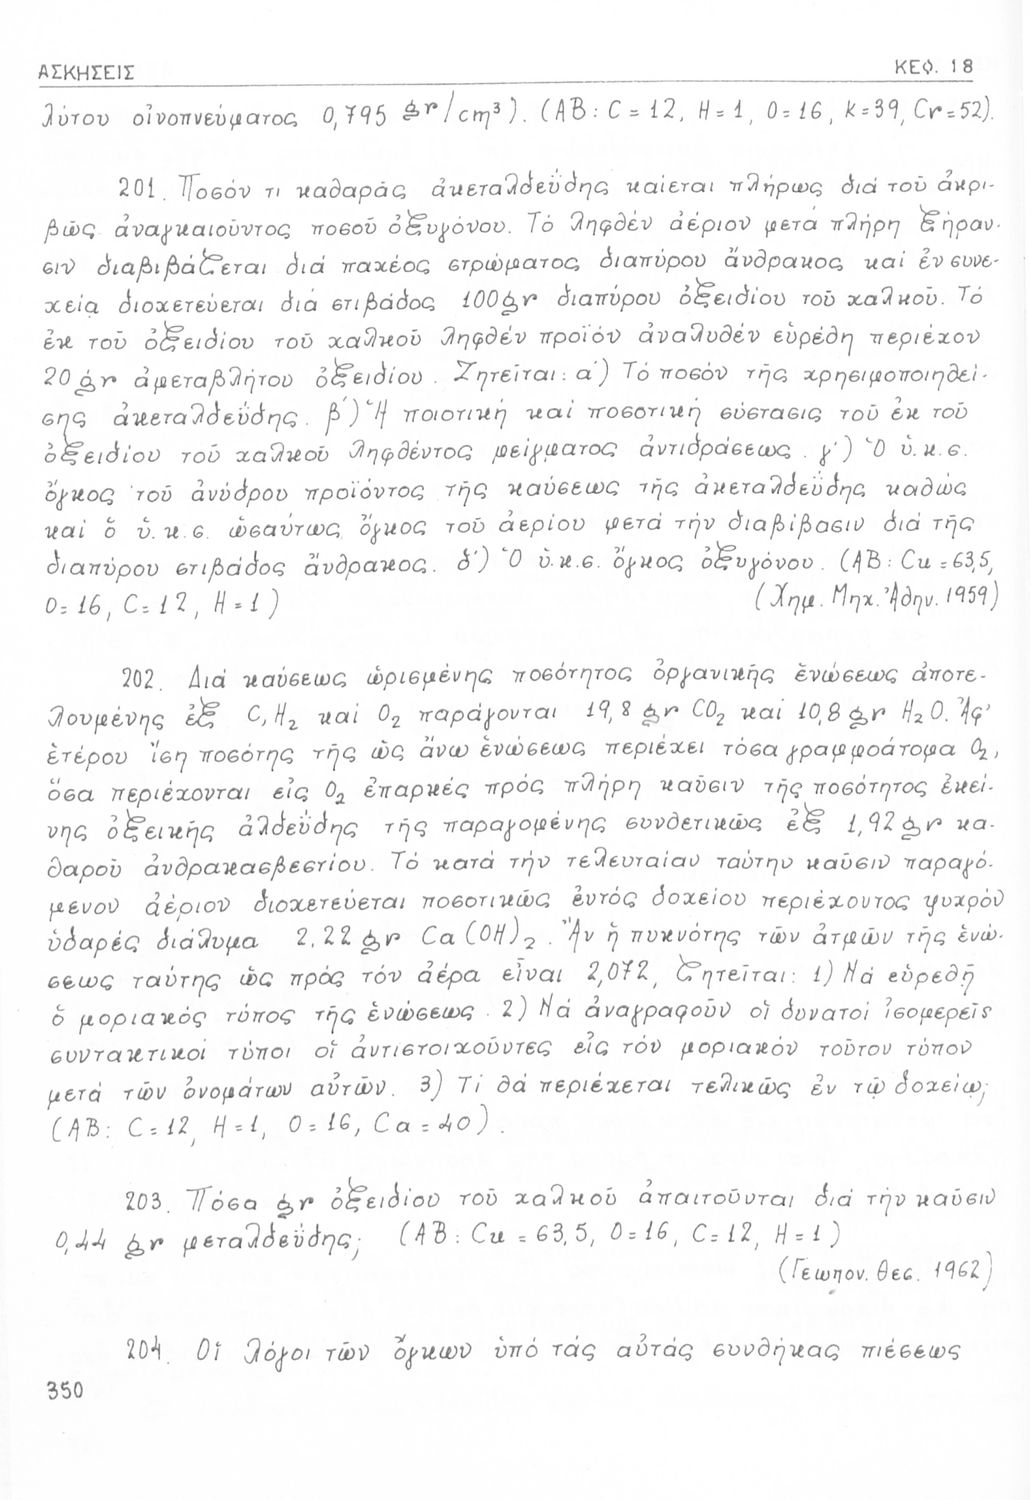 ΑΣΚΗΣΕΙΣ ΚΕΦ. 18
λύτου οἰνοπνεύματος 0,795 gr/cm³). (ΑΒ: C = 12, H = 1, O = 16, K = 39, Cr = 52).
201. Ποσόν τι καθαρᾶς ἀκεταλδεΰδης καίεται πλήρως διά τοῦ ἀκρι-
βῶς ἀναγκαιοῦντος ποσοῦ ὀξυγόνου. Τό ληφθέν ἀέριον μετά πλήρη ξήραν-
σιν διαβιβάζεται διά παχέος στρώματος διαπύρου ἄνθρακος καί ἐν συνε-
χείᾳ διοχετεύεται διά στιβάδος 100 gr διαπύρου ὀξειδίου τοῦ χαλκοῦ. Τό
ἐκ τοῦ ὀξειδίου τοῦ χαλκοῦ ληφθέν προϊόν ἀναλυθέν εὑρέθη περιέχον
20 gr ἀμεταβλήτου ὀξειδίου. Ζητεῖται: α΄) Τό ποσόν τῆς χρησιμοποιηθεί-
σης ἀκεταλδεΰδης. β΄) Ἡ ποιοτική καί ποσοτική σύστασις τοῦ ἐκ τοῦ
ὀξειδίου τοῦ χαλκοῦ ληφθέντος μείγματος ἀντιδράσεως. γ΄) Ὁ ὑ.κ.σ.
ὄγκος τοῦ ἀνύδρου προϊόντος τῆς καύσεως τῆς ἀκεταλδεΰδης καθώς
καί ὁ ὑ.κ.σ. ὡσαύτως ὄγκος τοῦ ἀερίου μετά τήν διαβίβασιν διά τῆς
διαπύρου στιβάδος ἄνθρακος. δ΄) Ὁ ὑ.κ.σ. ὄγκος ὀξυγόνου. (ΑΒ: Cu = 63,5,
O = 16, C = 12, H = 1) (Χημ. Μηχ. Ἀθην. 1959)
202. Διά καύσεως ὡρισμένης ποσότητος ὀργανικῆς ἑνώσεως ἀποτε-
λουμένης ἐξ C, H₂ καί O₂ παράγονται 19,8 gr CO₂ καί 10,8 gr H₂O. Ἀφ'
ἑτέρου ἴση ποσότης τῆς ὡς ἄνω ἑνώσεως περιέχει τόσα γραμμοάτομα O₂,
ὅσα περιέχονται εἰς O₂ ἐπαρκές πρός πλήρη καῦσιν τῆς ποσότητος ἐκεί-
νης ὀξεικῆς ἀλδεΰδης τῆς παραγομένης συνθετικῶς ἐξ 1,92 gr κα-
θαροῦ ἀνθρακασβεστίου. Τό κατά τήν τελευταίαν ταύτην καῦσιν παραγό-
μενον ἀέριον διοχετεύεται ποσοτικῶς ἐντός δοχείου περιέχοντος ψυχρόν
ὑδαρές διάλυμα 2,22 gr Ca(OH)₂. Ἄν ἡ πυκνότης τῶν ἀτμῶν τῆς ἑνώ-
σεως ταύτης ὡς πρός τόν ἀέρα εἶναι 2,072, ζητεῖται: 1) Νά εὑρεθῇ
ὁ μοριακός τύπος τῆς ἑνώσεως. 2) Νά ἀναγραφοῦν οἱ δυνατοί ἰσομερεῖς
συντακτικοί τύποι οἱ ἀντιστοιχοῦντες εἰς τόν μοριακόν τοῦτον τύπον
μετά τῶν ὀνομάτων αὐτῶν. 3) Τί θά περιέχεται τελικῶς ἐν τῷ δοχείῳ;
(ΑΒ: C = 12, H = 1, O = 16, Ca = 40).
203. Πόσα gr ὀξειδίου τοῦ χαλκοῦ ἀπαιτοῦνται διά τήν καῦσιν
0,44 gr μεταλδεΰδης; (ΑΒ: Cu = 63,5, O = 16, C = 12, H = 1)
(Γεωπον. Θεσ. 1962)
204. Οἱ λόγοι τῶν ὄγκων ὑπό τάς αὐτάς συνθήκας πιέσεως
350